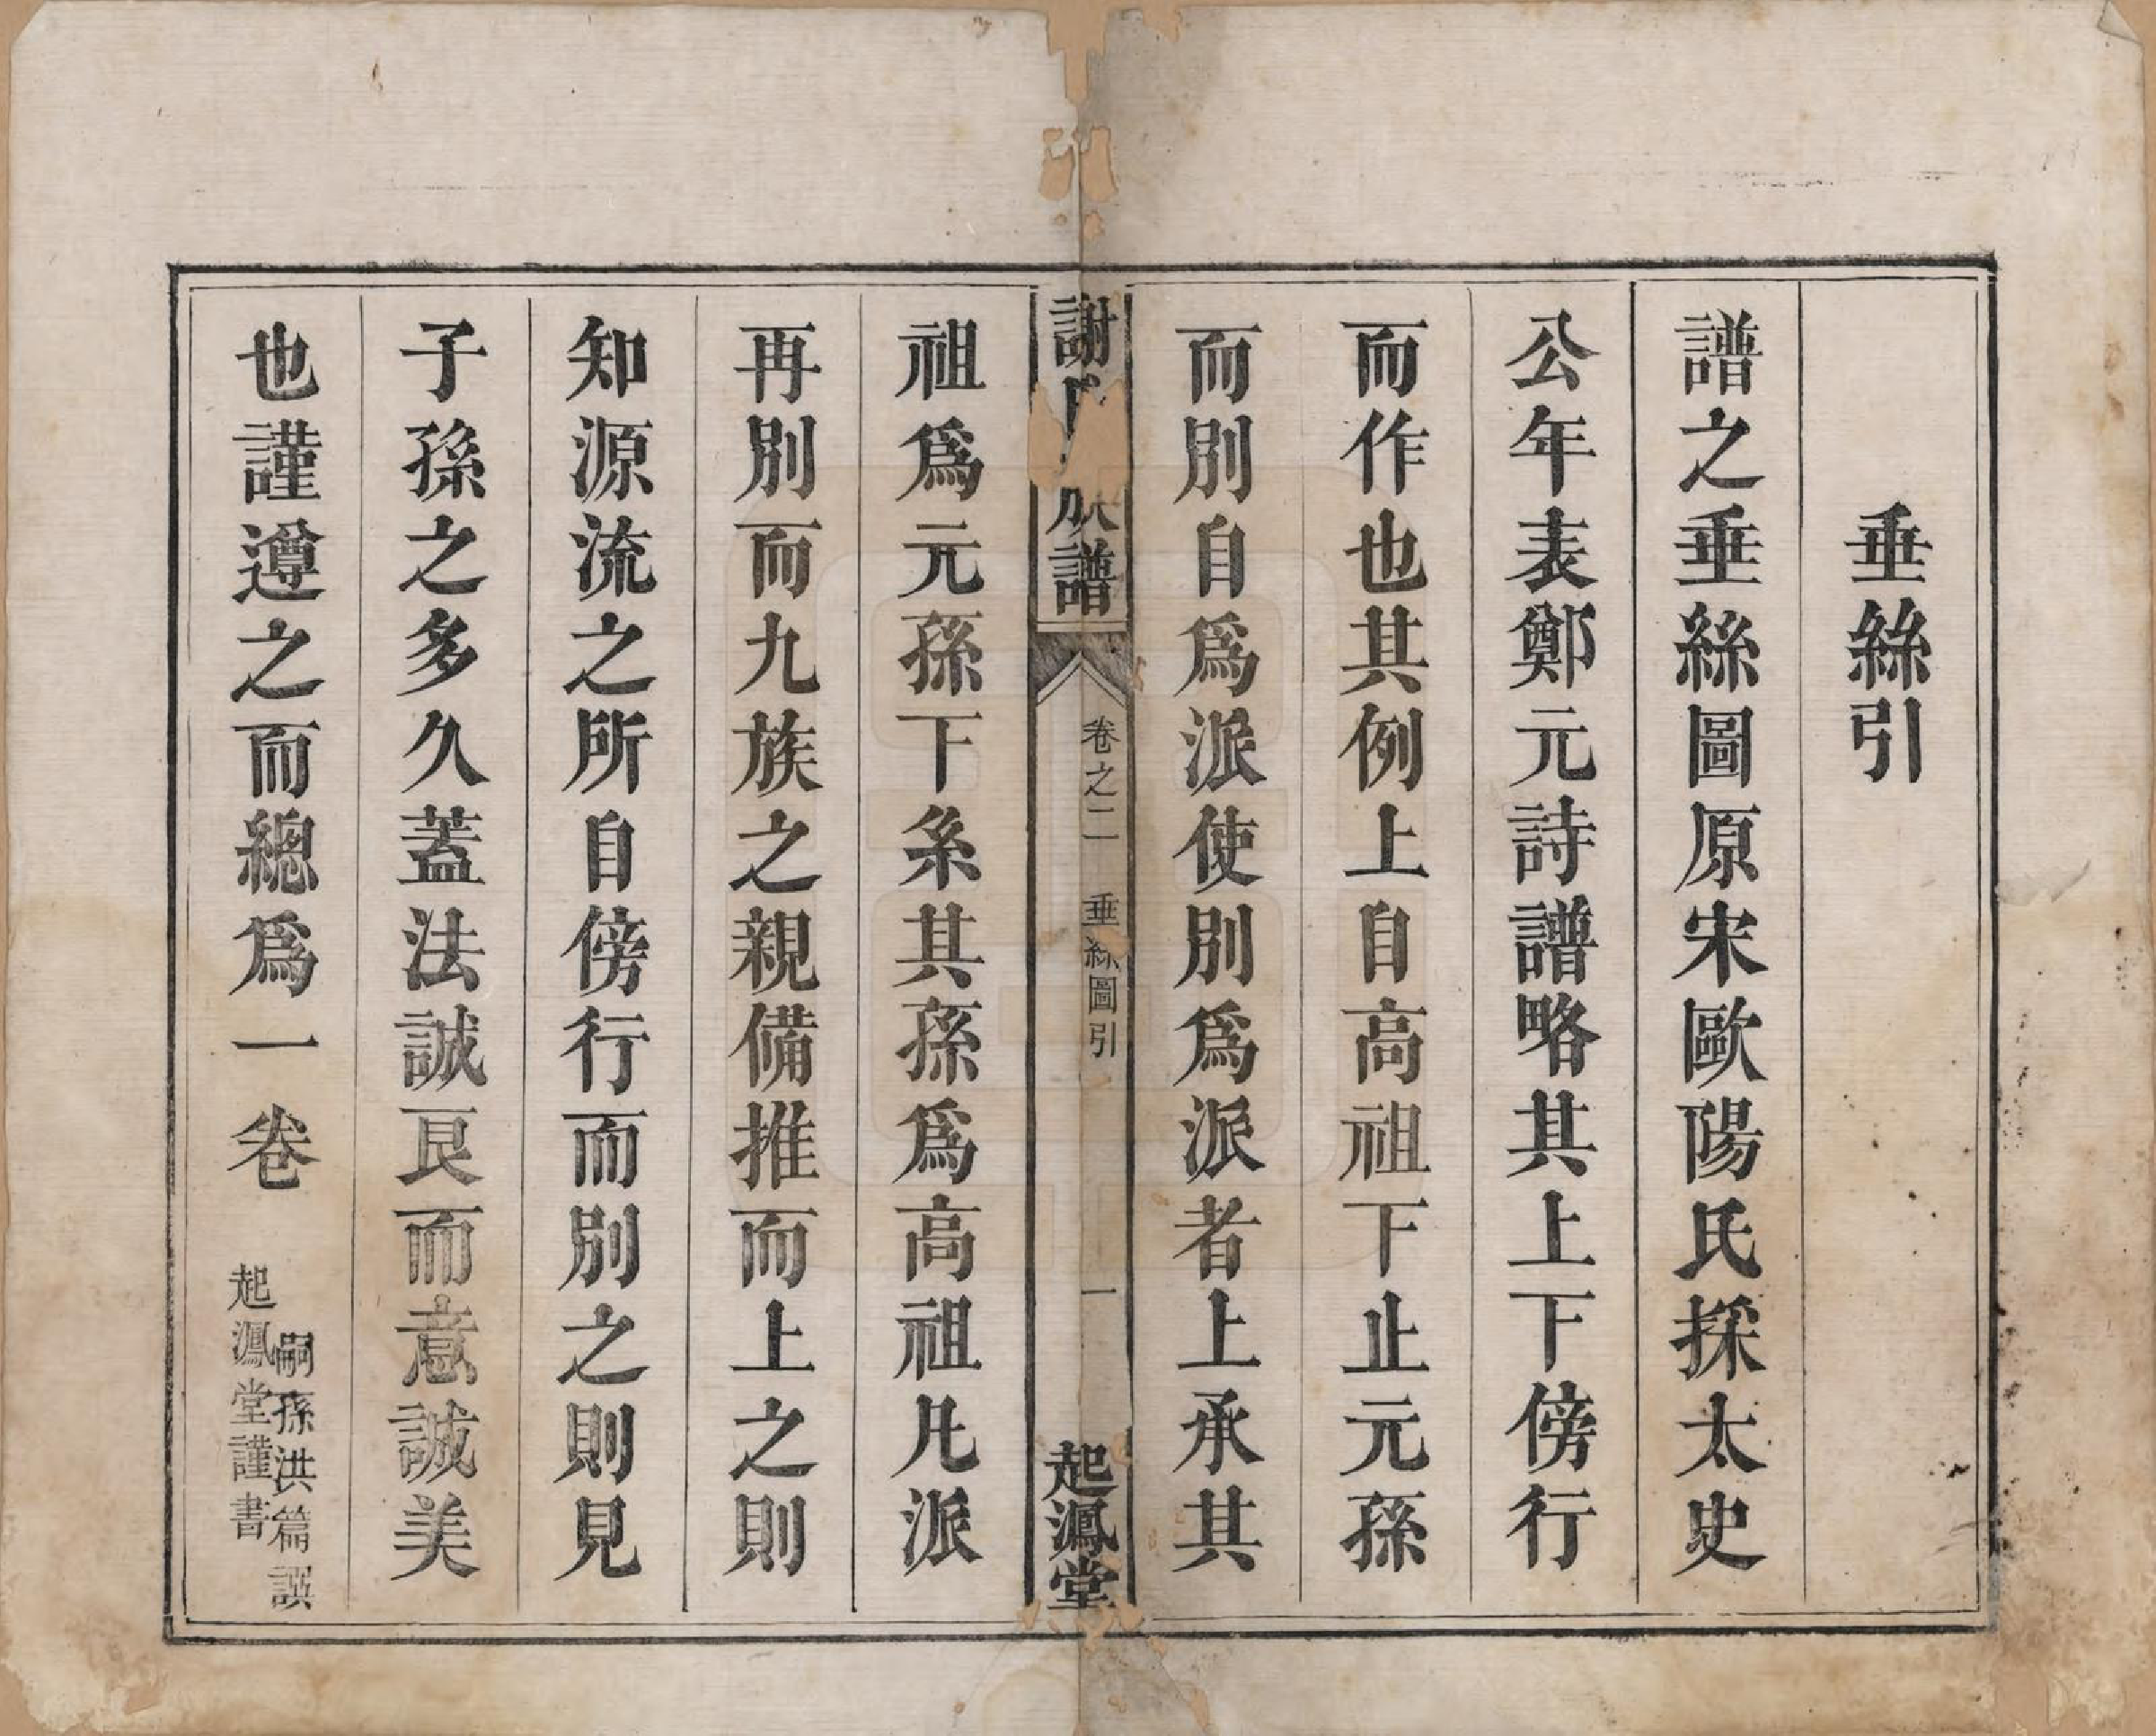 垂絲引
譜之垂絲圖原宋歐陽氏採太史
公年表鄭元詩譜略其上下傍行
而作也其例上自高祖下止元孫
而別自爲派使別爲派者上承其
謝氏族譜
卷之二 垂絲圖引
一
起鳳堂
祖爲元孫下系其孫爲高祖凡派
再別而九族之親備推而上之則
知源流之所自傍行而別之則見
子孫之多久蓋法誠艮而意誠美
也謹遵之而總爲一卷
嗣孫洪篇譔
起鳳堂謹書